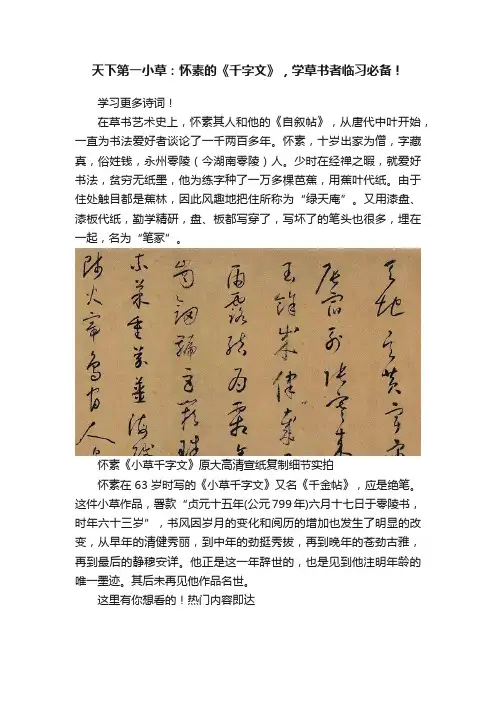 天下第一小草：怀素的《千字文》，学草书者临习必备！
学习更多诗词！
在草书艺术史上，怀素其人和他的《自叙帖》，从唐代中叶开始，
一直为书法爱好者谈论了一千两百多年。怀素，十岁出家为僧，字藏
真，俗姓钱，永州零陵（今湖南零陵）人。少时在经禅之暇，就爱好
书法，贫穷无纸墨，他为练字种了一万多棵芭蕉，用蕉叶代纸。由于
住处触目都是蕉林，因此风趣地把住所称为“绿天庵”。又用漆盘、
漆板代纸，勤学精研，盘、板都写穿了，写坏了的笔头也很多，埋在
一起，名为“笔冢”。
天地玄黄宇宙
辰宿列張寒来
餘律
雨露結為霜金
岡劔號巨闕珠
柰菜重芥薑海鹹
師火帝鳥官人皇
怀素《小草千字文》原大高清宣纸复制细节实拍
怀素在63岁时写的《小草千字文》又名《千金帖》，应是绝笔。
这件小草作品，署款“贞元十五年(公元799年)六月十七日于零陵书，
时年六十三岁”，书风因岁月的变化和阅历的增加也发生了明显的改
变，从早年的清健秀丽，到中年的劲挺秀拔，再到晚年的苍劲古雅，
再到最后的静穆安详。他正是这一年辞世的，也是见到他注明年龄的
唯一墨迹。其后未再见他作品名世。
这里有你想看的！热门内容即达